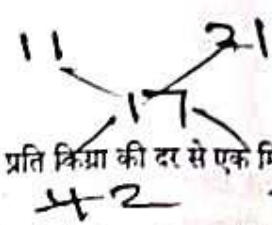 11 21
17
प्रति किग्रा की दर से एक
42